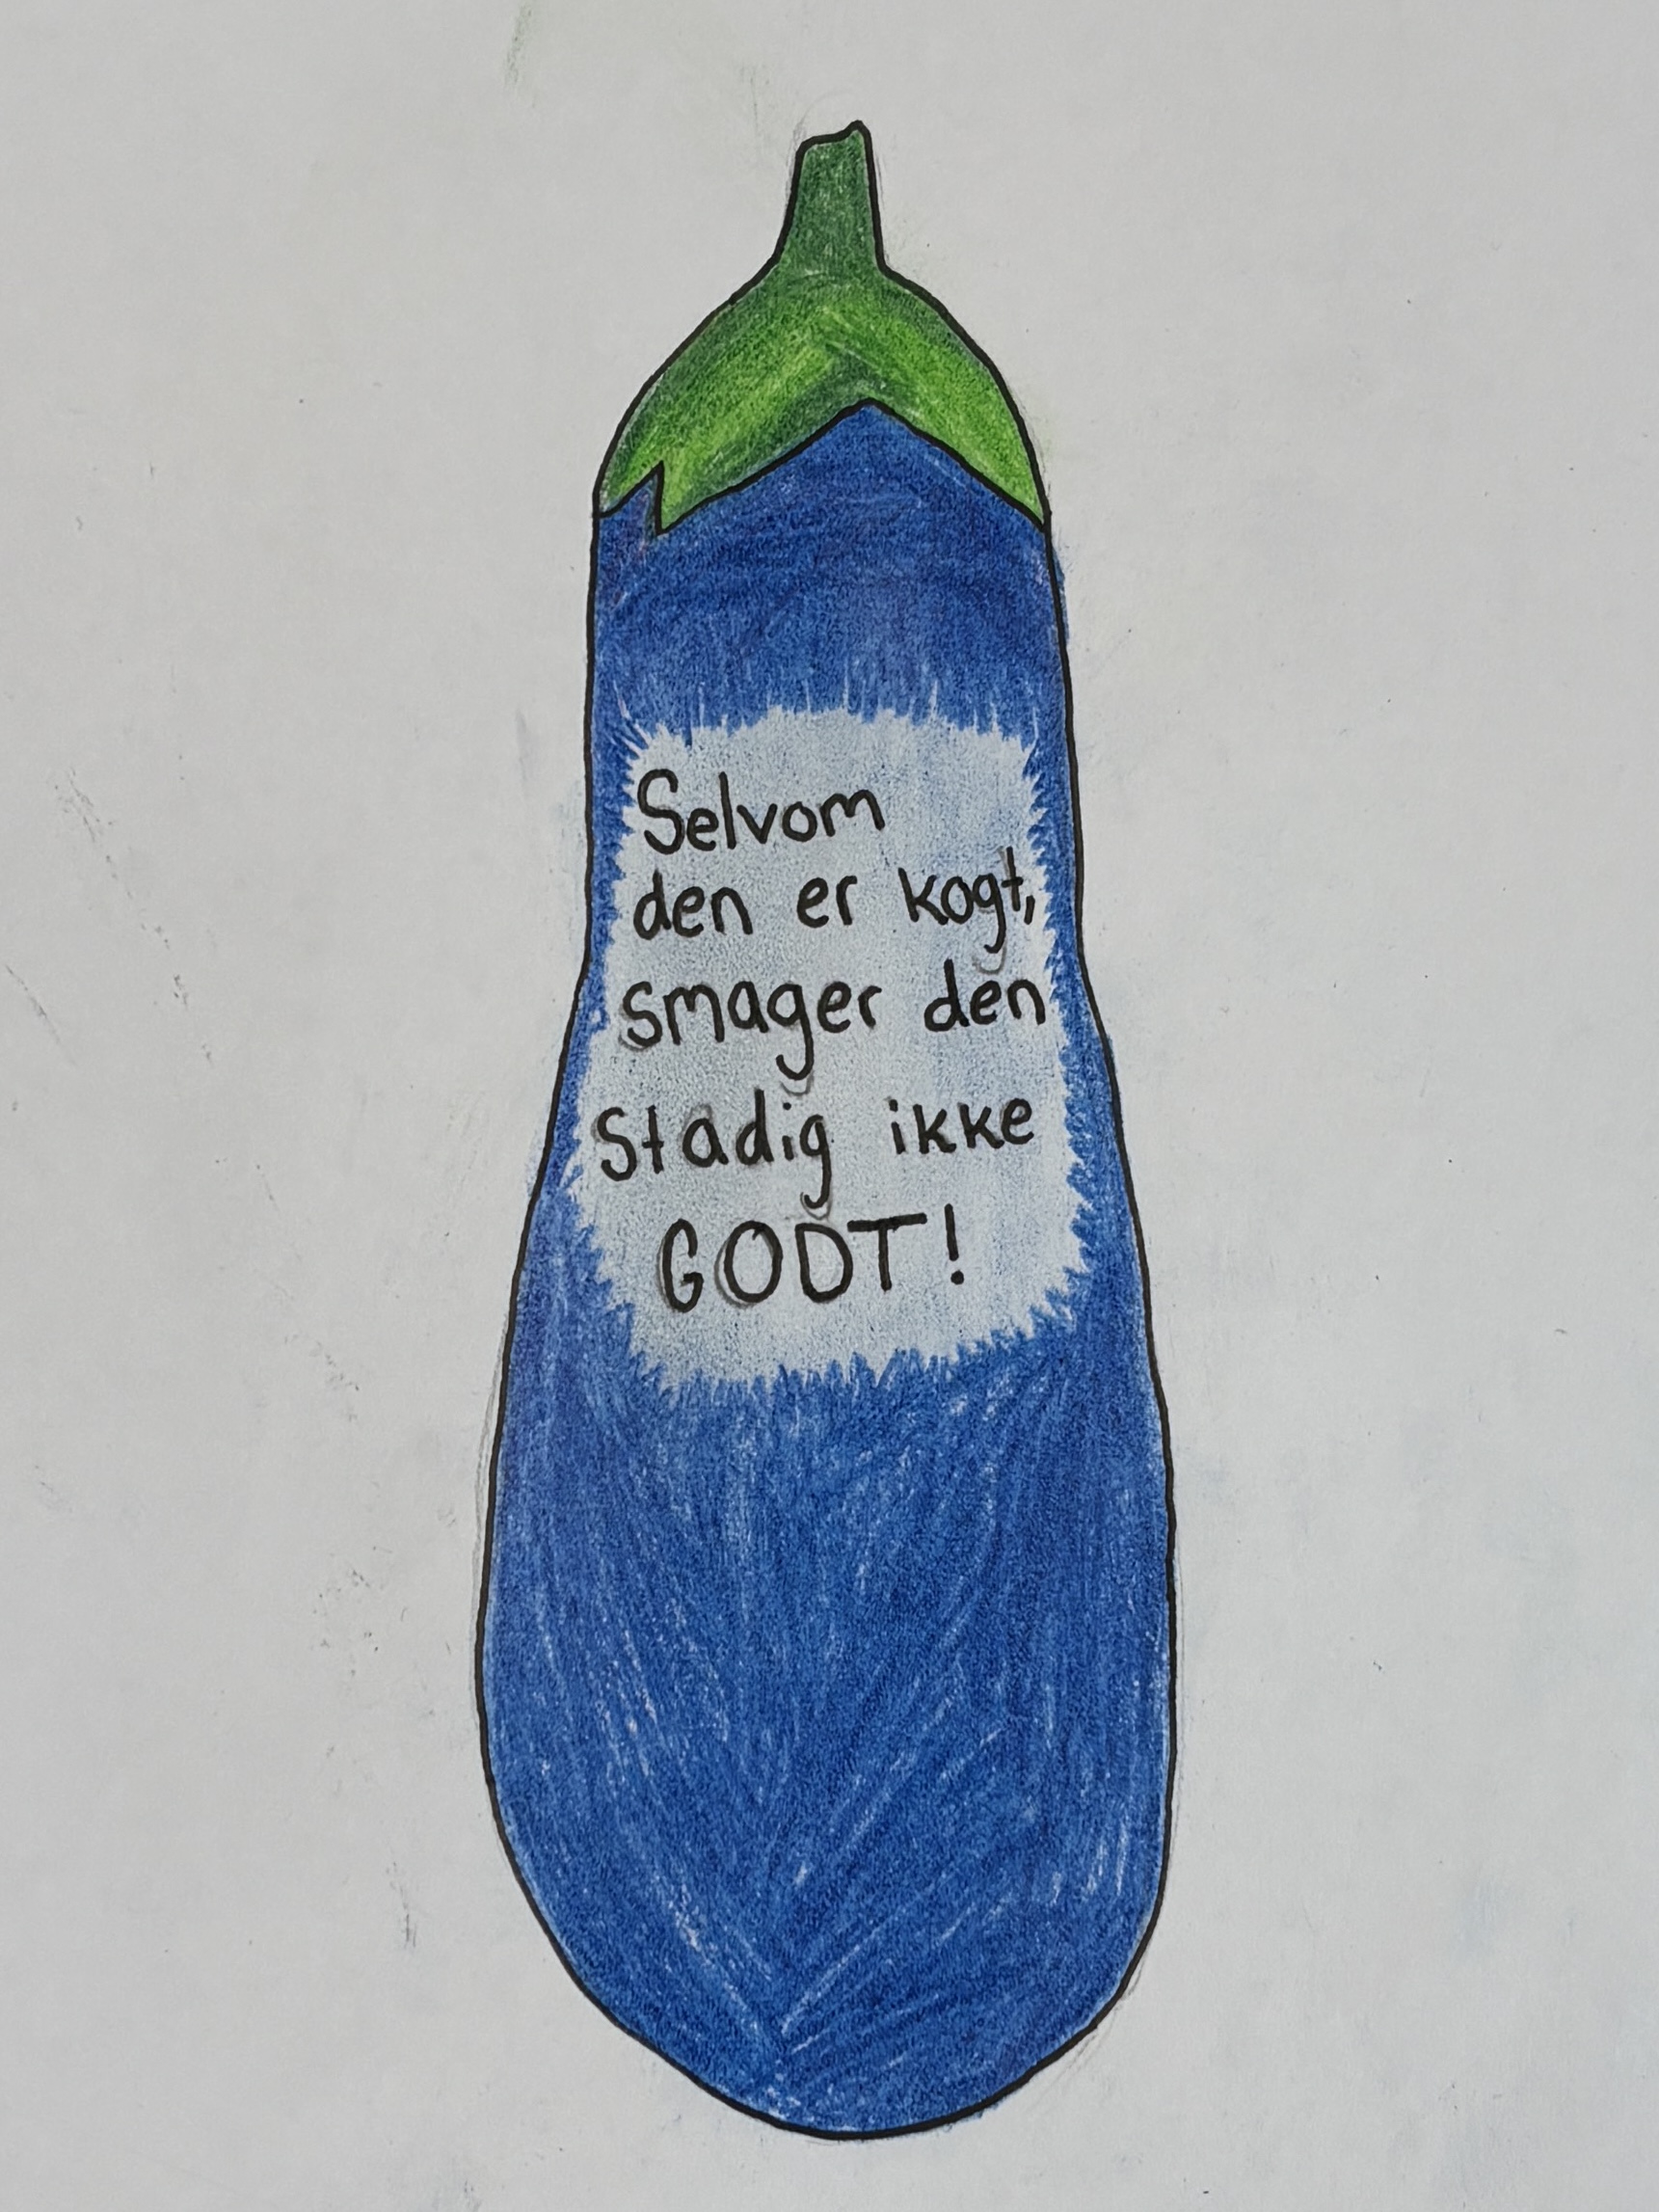 Selvom
den er kogt,
smager den
Stadig ikke
GODT!